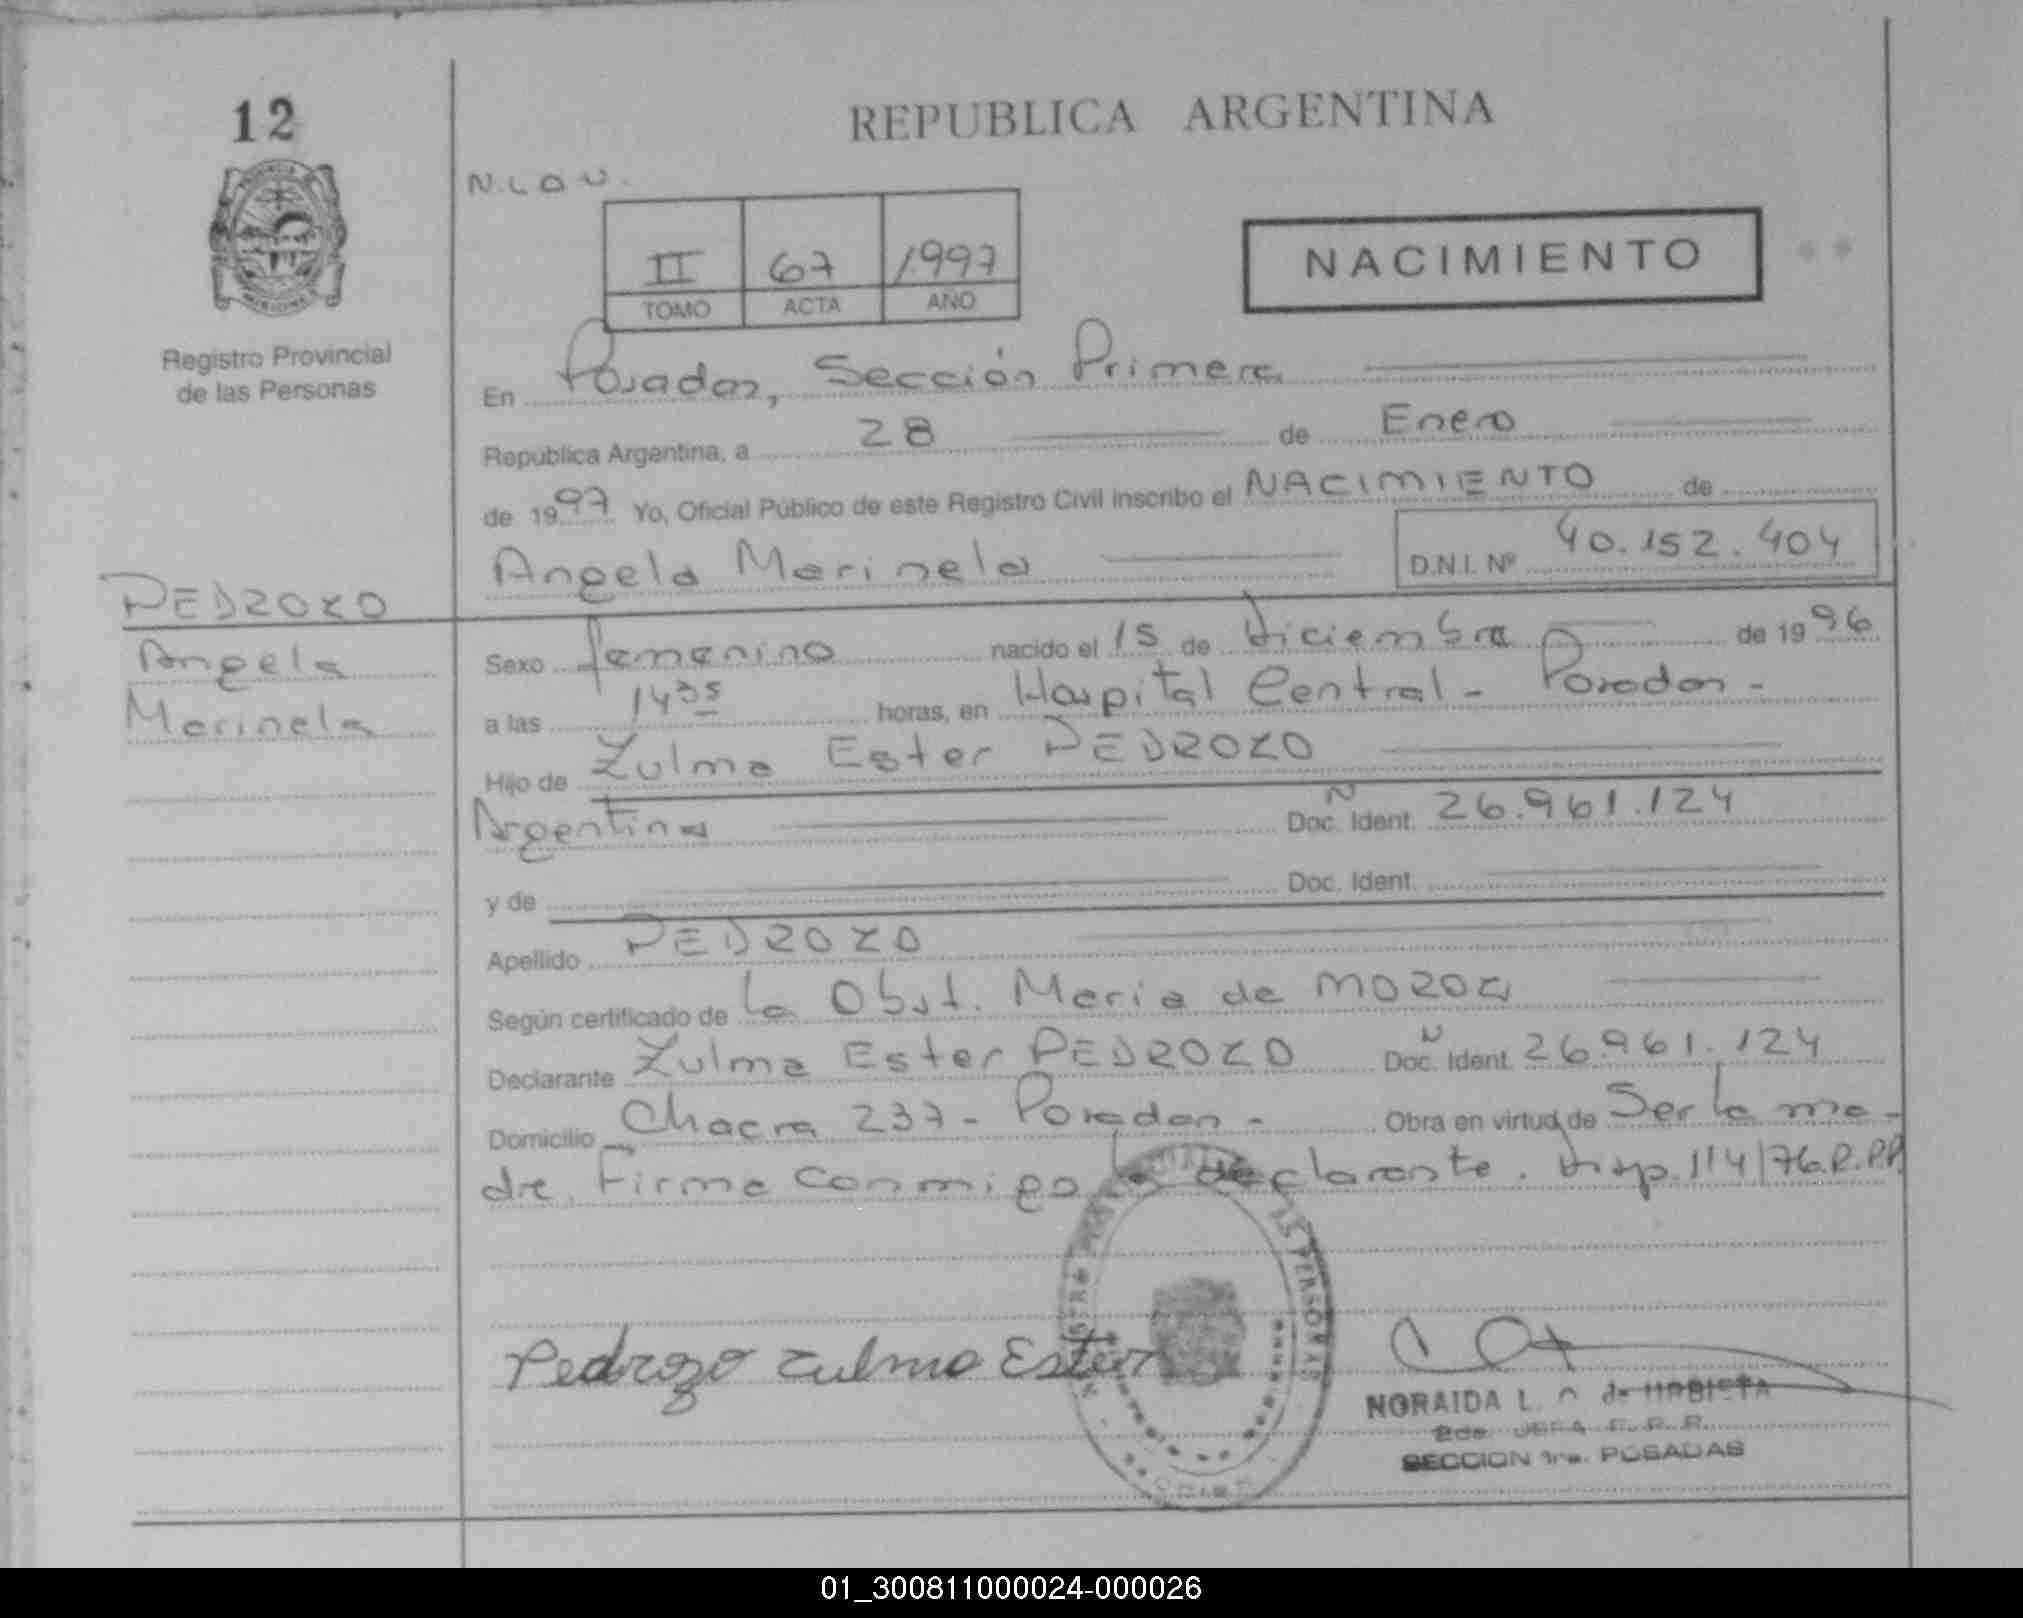 12
REPUBLICA ARGENTINA
N.L.O.U.
II 67 1997
TOMO ACTA AÑO
NACIMIENTO
Registro Provincial
de las Personas
En Posadas, Sección Primera
Republica Argentina, a 28 de Enero
de 1997 Yo, Oficial Público de este Registro Civil inscribo el NACIMIENTO de
Angela Marinela D.N.I. Nº 40.152.404
PEDROZO
Angela
Marinela
Sexo femenino nacido el 15 de Diciembre de 1996
a las 14 35 horas, en Hospital Central - Posadas -
Hijo de Zulma Ester PEDROZO
Argentina Doc. Ident. 26.961.124
y de Doc. Ident.
Apellido PEDROZO
Según certificado de la Obst. Maria de
Declarante Zulma Ester PEDROZO Doc. Ident. 26.961.124
Domicilio Chacra 237 - Posadas - Obra en virtud de Ser la ma-
dre. Firma conmigo la declarante. Disp. 114/76.R.P.P.
Pedrozo Zulma Ester
PERSONAS
NORAIDA L.
2da. JEFA
SECCION 1ra. POSADAS
01_300811000024-000026